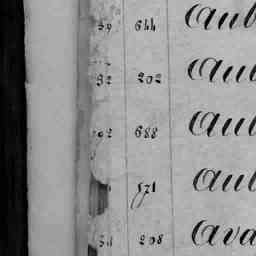 39 644 Aub
32 202 Aub
92 688 Aub
571 Aub
31 208 Ava